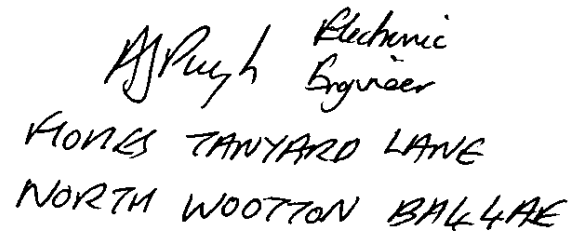 AJPugh Electronic
Engineer
TANYARD LANE
NORTH WOOTTON BA4 4AE